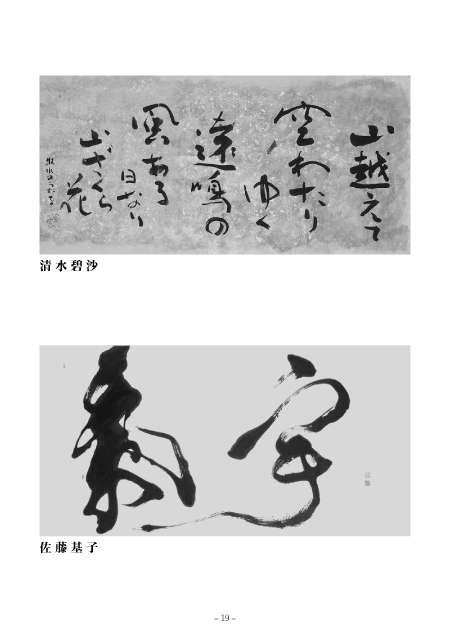 山越えて
空わたり
ゆく
遠鳴の
風ある
日なり
山ざくら
花
牧水のうた
清水碧沙
佐藤基子
– 19 –